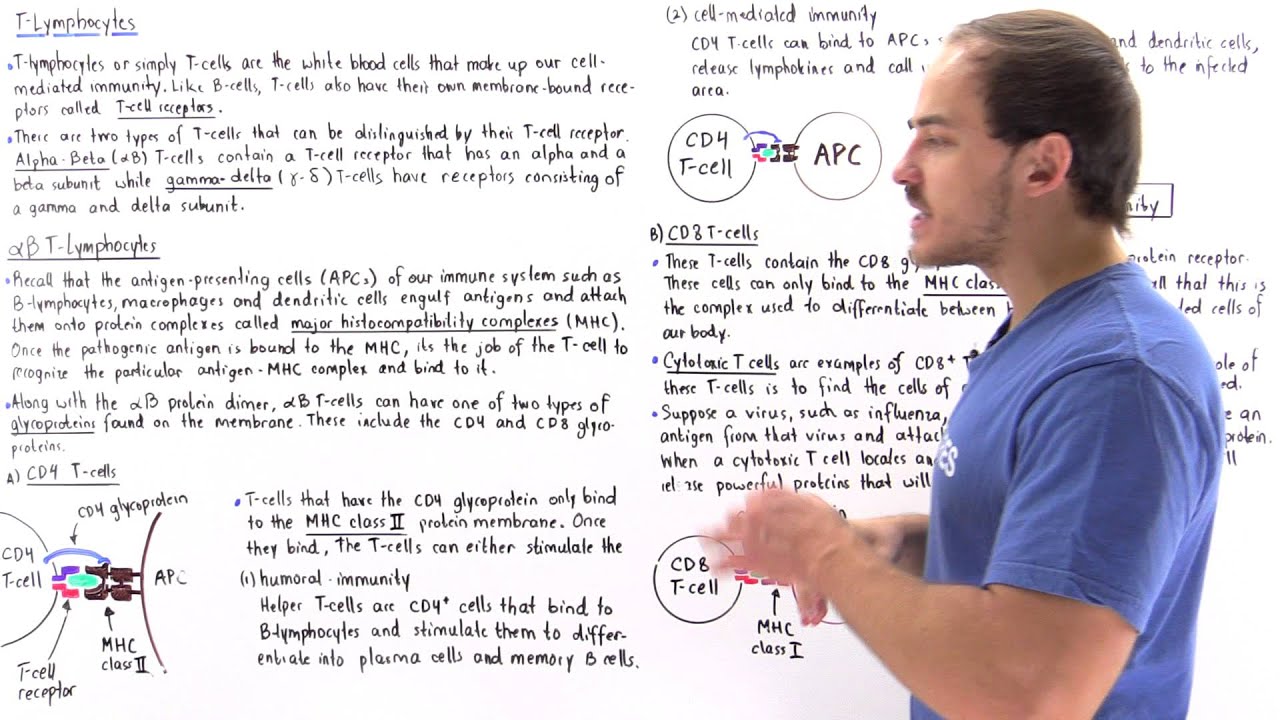 T-Lymphocytes
• T-lymphocytes or simply T-cells are the white blood cells that make up our cell-
mediated immunity. Like B-cells, T-cells also have their own membrane-bound rece-
ptors called T-cell receptors.
• There are two types of T-cells that can be distinguished by their T-cell receptor.
Alpha-Beta (αβ) T-cells contain a T-cell receptor that has an alpha and a
beta subunit while gamma-delta (γ-δ) T-cells have receptors consisting of
a gamma and delta subunit.
αβ T-Lymphocytes
• Recall that the antigen-presenting cells (APCs) of our immune system such as
B-lymphocytes, macrophages and dendritic cells engulf antigens and attach
them onto protein complexes called major histocompatibility complexes (MHC).
Once the pathogenic antigen is bound to the MHC, its the job of the T-cell to
recognize the particular antigen-MHC complex and bind to it.
• Along with the αβ protein dimer, αβ T-cells can have one of two types of
glycoproteins found on the membrane. These include the CD4 and CD8 glyco-
proteins.
A) CD4 T-cells
CD4 glycoprotein
CD4
T-cell
APC
MHC
class II
T-cell
receptor
• T-cells that have the CD4 glycoprotein only bind
to the MHC class II protein membrane. Once
they bind, the T-cells can either stimulate the
(1) humoral-immunity
Helper T-cells are CD4+ cells that bind to
B-lymphocytes and stimulate them to differ-
entiate into plasma cells and memory B cells.
(2) cell-mediated immunity
CD4 T-cells can bind to APCs and dendritic cells,
release lymphokines and call to the infected
area.
CD4
T-cell
APC
B) CD8 T-cells
• These T-cells contain the CD8 receptor.
These cells can only bind to the MHC class that this is
the complex used to differentiate between cells of
our body.
• Cytotoxic T cells are examples of CD8+ of
these T-cells is to find the cells of
• Suppose a virus, such as influenza, an
antigen from that virus and protein.
When a cytotoxic T cell locates
release powerful proteins that will
CD8
T-cell
MHC
class I